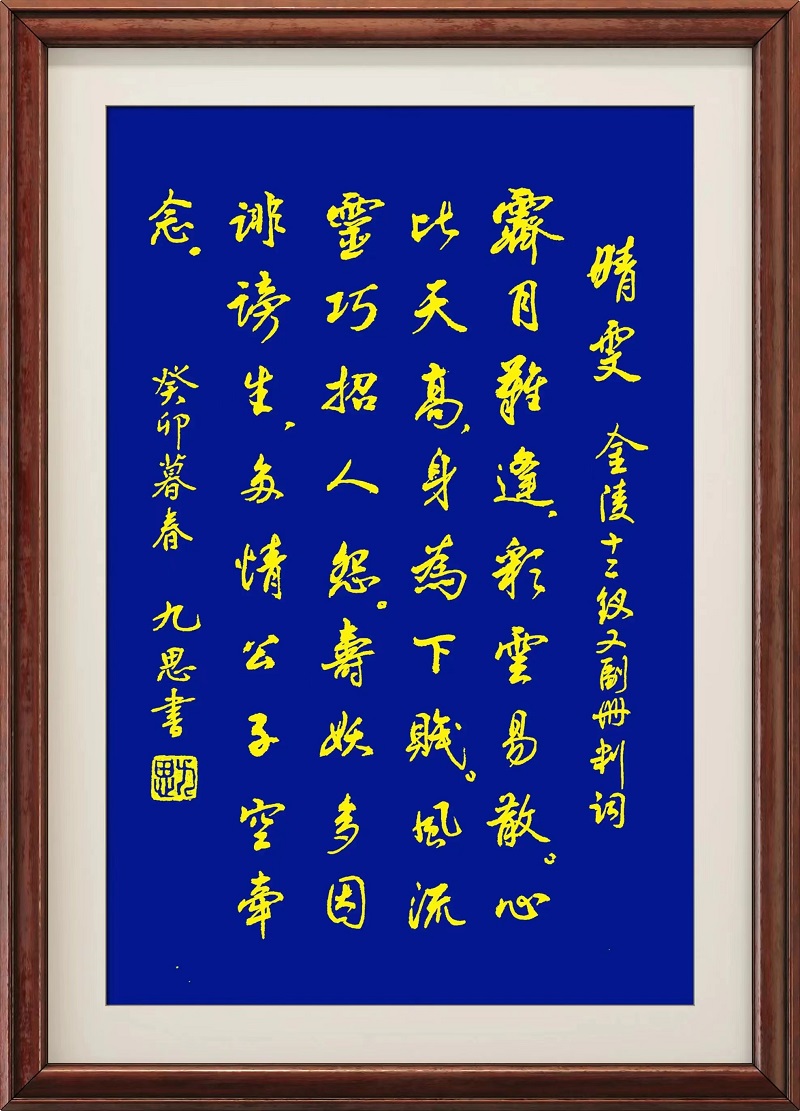 晴雯 金陵十二钗又副冊判词
霽月難逢，彩雲易散。心
比天高，身為下賤。風流
靈巧招人怨。壽妖多因
诽谤生，多情公子空牽
念。 癸卯暮春 九思書
九思